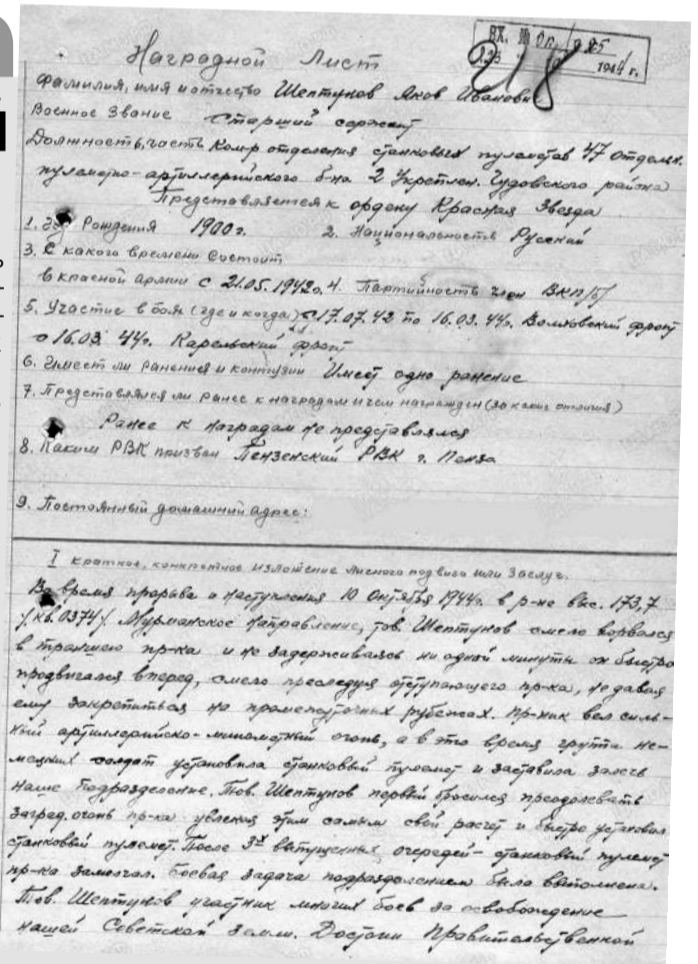 ВХ. № оп/985
1944 г.
218
Наградной Лист
Фамилия, имя и отчество Шептунов Яков Иванович
Военное Звание Старший сержант
Должность, часть Ком-р отделения станковых пулеметов 47 отдельн.
пулеметно-артиллерийского б-на 2 Укреплен. Чудовского района
Представляется к ордену Красная Звезда
1. Год Рождения 1900г. 2. Национальность Русский
3. С какого времени состоит
в красной армии с 21.05.1942г. 4. Партийность член ВКП/б/
5. Участие в боях (где и когда) с 17.07.42 по 16.03.44г. Волховский фронт
с 16.03.44г. Карельский фронт
6. Имеет ли ранения и контузии Имеет одно ранение
7. Представлялся ли ранее к наградам и чем награжден (за какие отличия)
Ранее к наградам не представлялся
8. Каким РВК призван Пензенский РВК г. Пенза
9. Постоянный домашний адрес:
I краткое, конкретное изложение личного подвига или заслуг.
Во время прорыва и наступления 10 Октября 1944г. в р-не выс. 173,7
/кв. 0374/ Мурманское направление, тов. Шептунов смело ворвался
в траншею пр-ка и не задерживаясь ни одной минуты он быстро
продвигался вперед, смело преследуя отступающего пр-ка, не давая
ему закрепиться на промежуточных рубежах. Пр-ник вел силь-
ный артиллерийско-минометный огонь, а в это время группа не-
мецких солдат установила станковый пулемет и заставила залечь
наше подразделение. Тов. Шептунов первый бросился преодолевать
заград. огонь пр-ка увлекая этим самым свой расчет и быстро установил
станковый пулемет. После 3х выпущенных очередей - станковый пулемет
пр-ка замолчал. Боевая задача подразделением была выполнена.
Тов. Шептунов участник многих боев за освобождение
нашей Советской земли. Достоин Правительственной